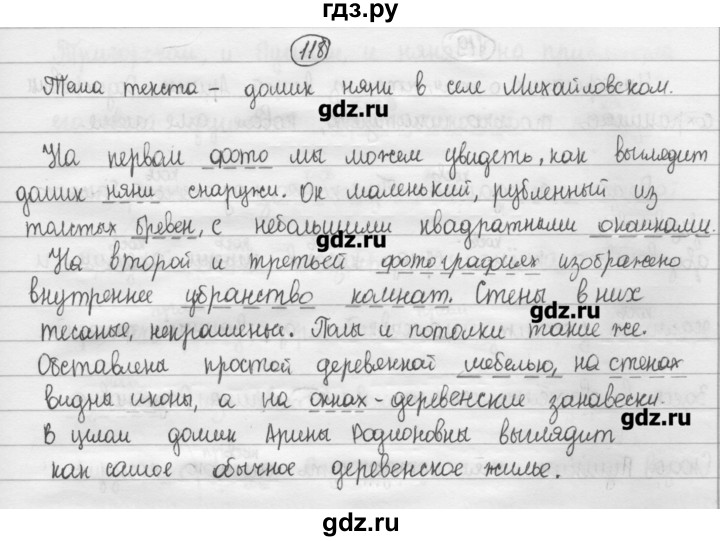 гдз.ру
118
Тема текста – домик няни в селе Михайловском.
gdz.ru
На первом фото мы можем увидеть, как выглядит
домик няни снаружи. Он маленький, рубленный из
толстых бревен, с небольшими квадратными окошками.
gdz.ru
На второй и третьей фотографиях изображено
внутреннее убранство комнат. Стены в них
gdz.ru
тесаные, некрашены. Полы и потолки такие же.
Обставлены простой деревянной мебелью, на стенах
видны иконы, а на окнах – деревенские занавески.
gdz.ru
В целом домик Арины Родионовны выглядит
как самое обычное деревенское жилье.
gdz.ru